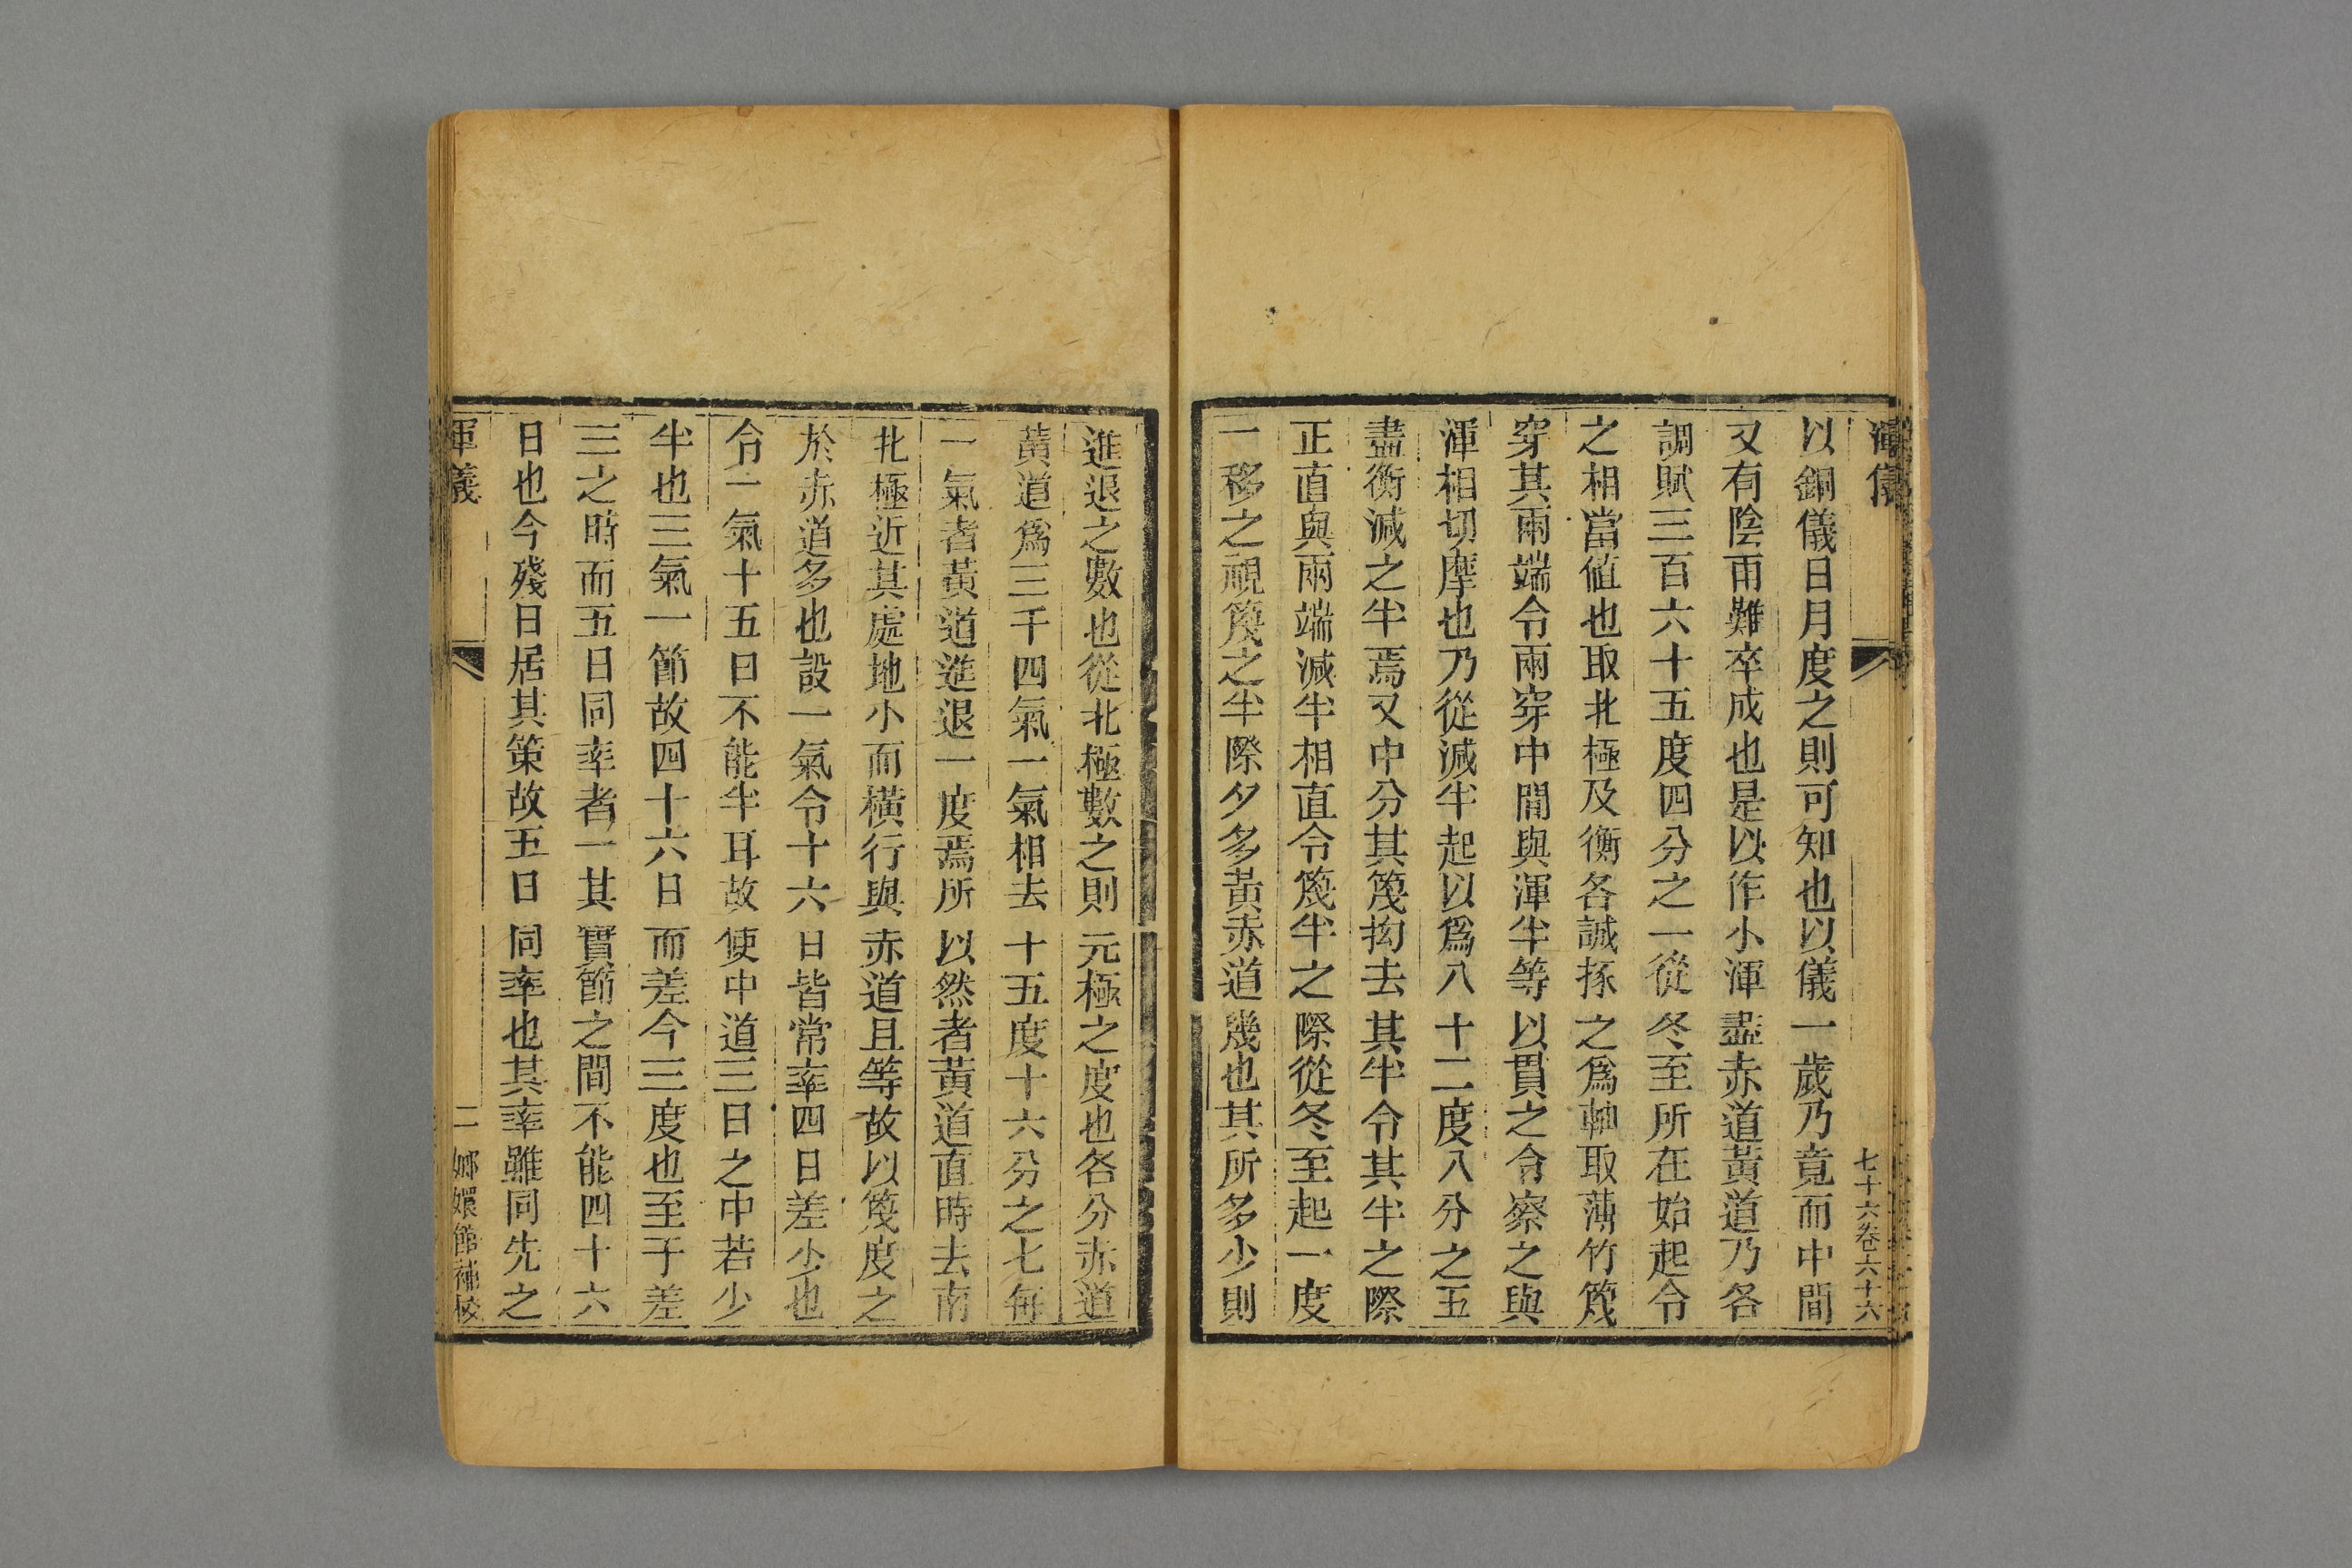 渾儀
七十六卷六十六
以銅儀日月度之則可知也以儀一歲乃竟而中間
又有陰雨難卒成也是以作小渾盡赤道黃道乃各
調賦三百六十五度四分之一從冬至所在始起令
之相當值也取北極及衡各誠㧻之爲軸取薄竹篾
穿其兩端令兩穿中間與渾半等以貫之令察之與
渾相切摩也乃從減半起以爲八十二度八分之五
盡衡減之半焉又中分其篾抅去其半令其半之際
正直與兩端減半相直令篾半之際從冬至起一度
一移之視篾之半際夕多黃赤道幾也其所多少則
進退之數也從北極數之則元極之度也各分赤道
黃道爲三千四氣一氣相去十五度十六分之七每
一氣者黃道進退一度焉所以然者黃道直時去南
北極近其處地小而橫行與赤道且等故以篾度之
於赤道多也設一氣令十六日皆常率四日差少也
令一氣十五日不能半耳故使中道三日之中若少
半也三氣一節故四十六日而差今三度也至于差
三之時而五日同率者一其實節之間不能四十六
日也今殘日居其策故五日同率也其率雖同先之
渾儀
二
嫏嬛館補校